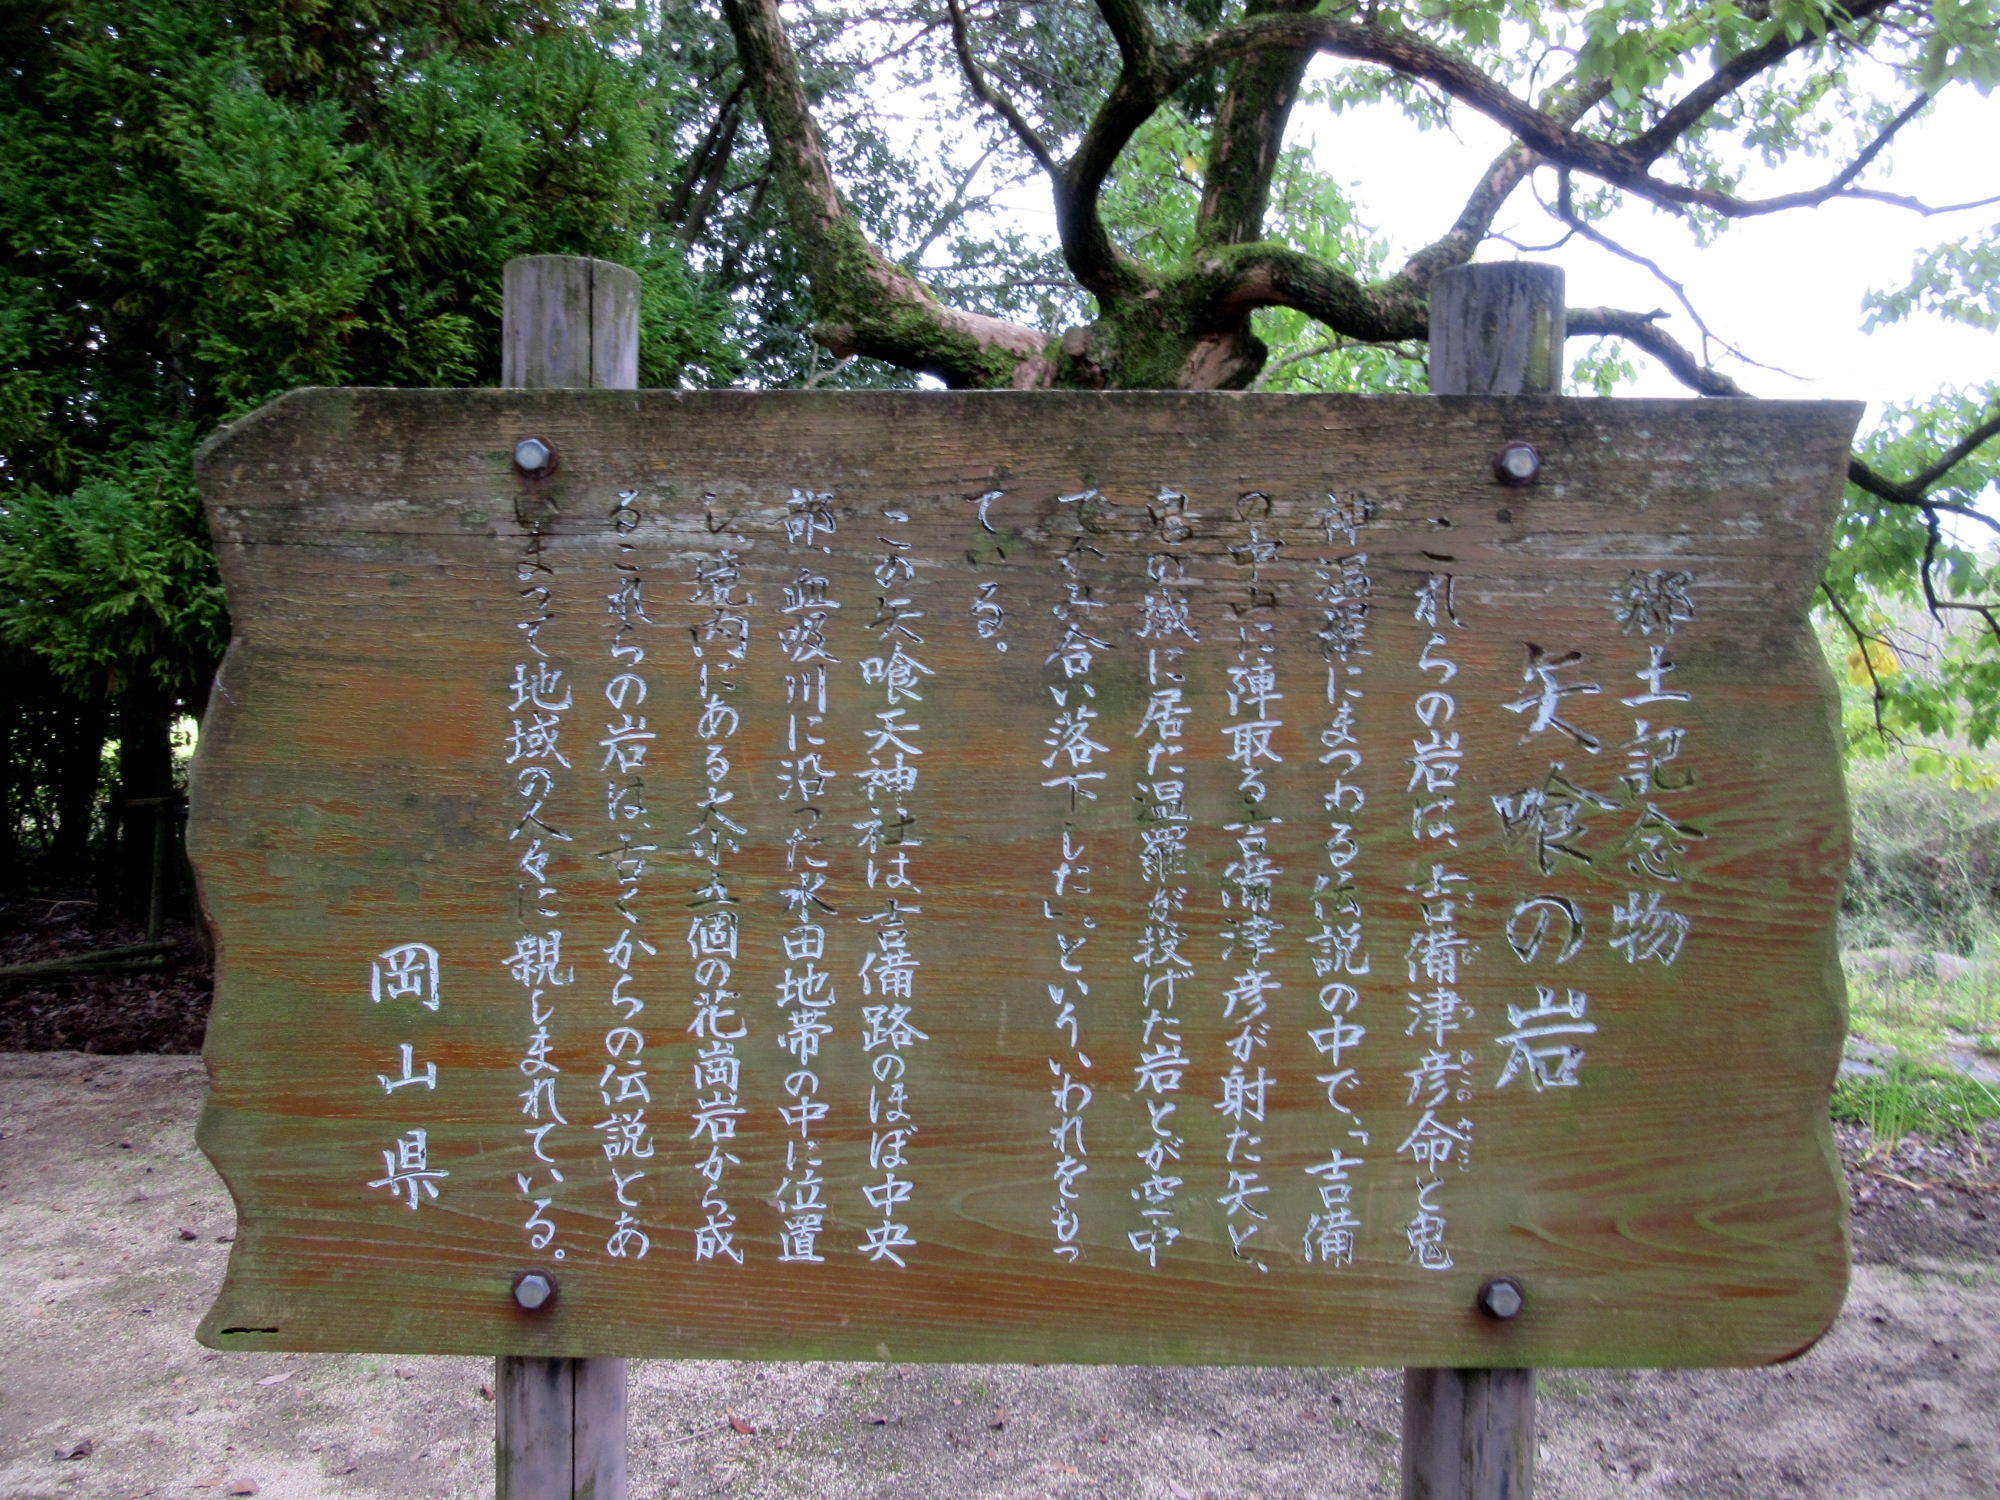 郷土記念物
矢喰の岩
これらの岩は、吉備津彦命と鬼
きびつひこのみこと
神温羅にまつわる伝説の中で、「吉備
の中山に陣取る吉備津彦が射た矢と、
鬼の城に居た温羅が投げた岩とが空中
でかみ合い落下した」。という、いわれをもっ
ている。
この矢喰天神社は、吉備路のほぼ中央
部、血吸川に沿った水田地帯の中に位置
し、境内にある大小五個の花崗岩から成
るこれらの岩は、古くからの伝説とあ
いまって地域の人々に親しまれている。
岡山県